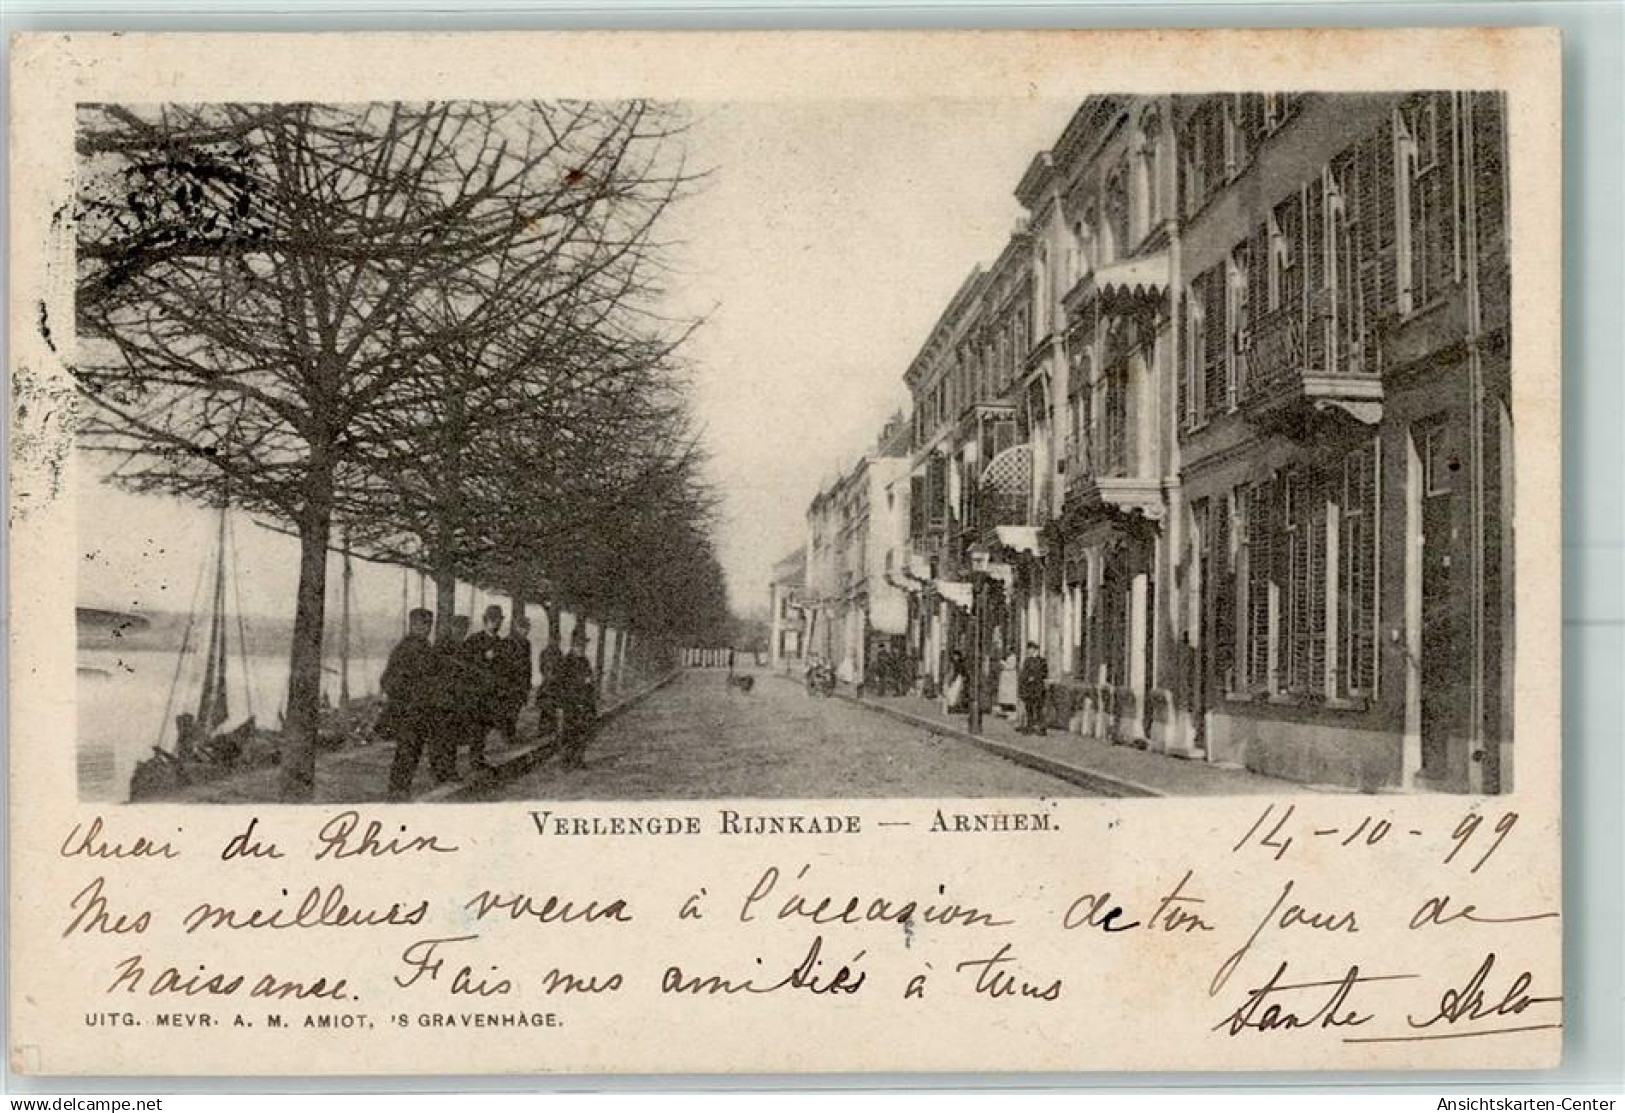 VERLENGDE RIJNKADE — ARNHEM.
Quai du Rhin
14-10-99
Mes meilleurs voeux à l'occasion de ton jour de
naissance. Fais mes amitiés à tous
Tante Arlo
UITG. MEVR. A. M. AMIOT, 'S GRAVENHAGE.
www.delcampe.net
Ansichtskarten-Center